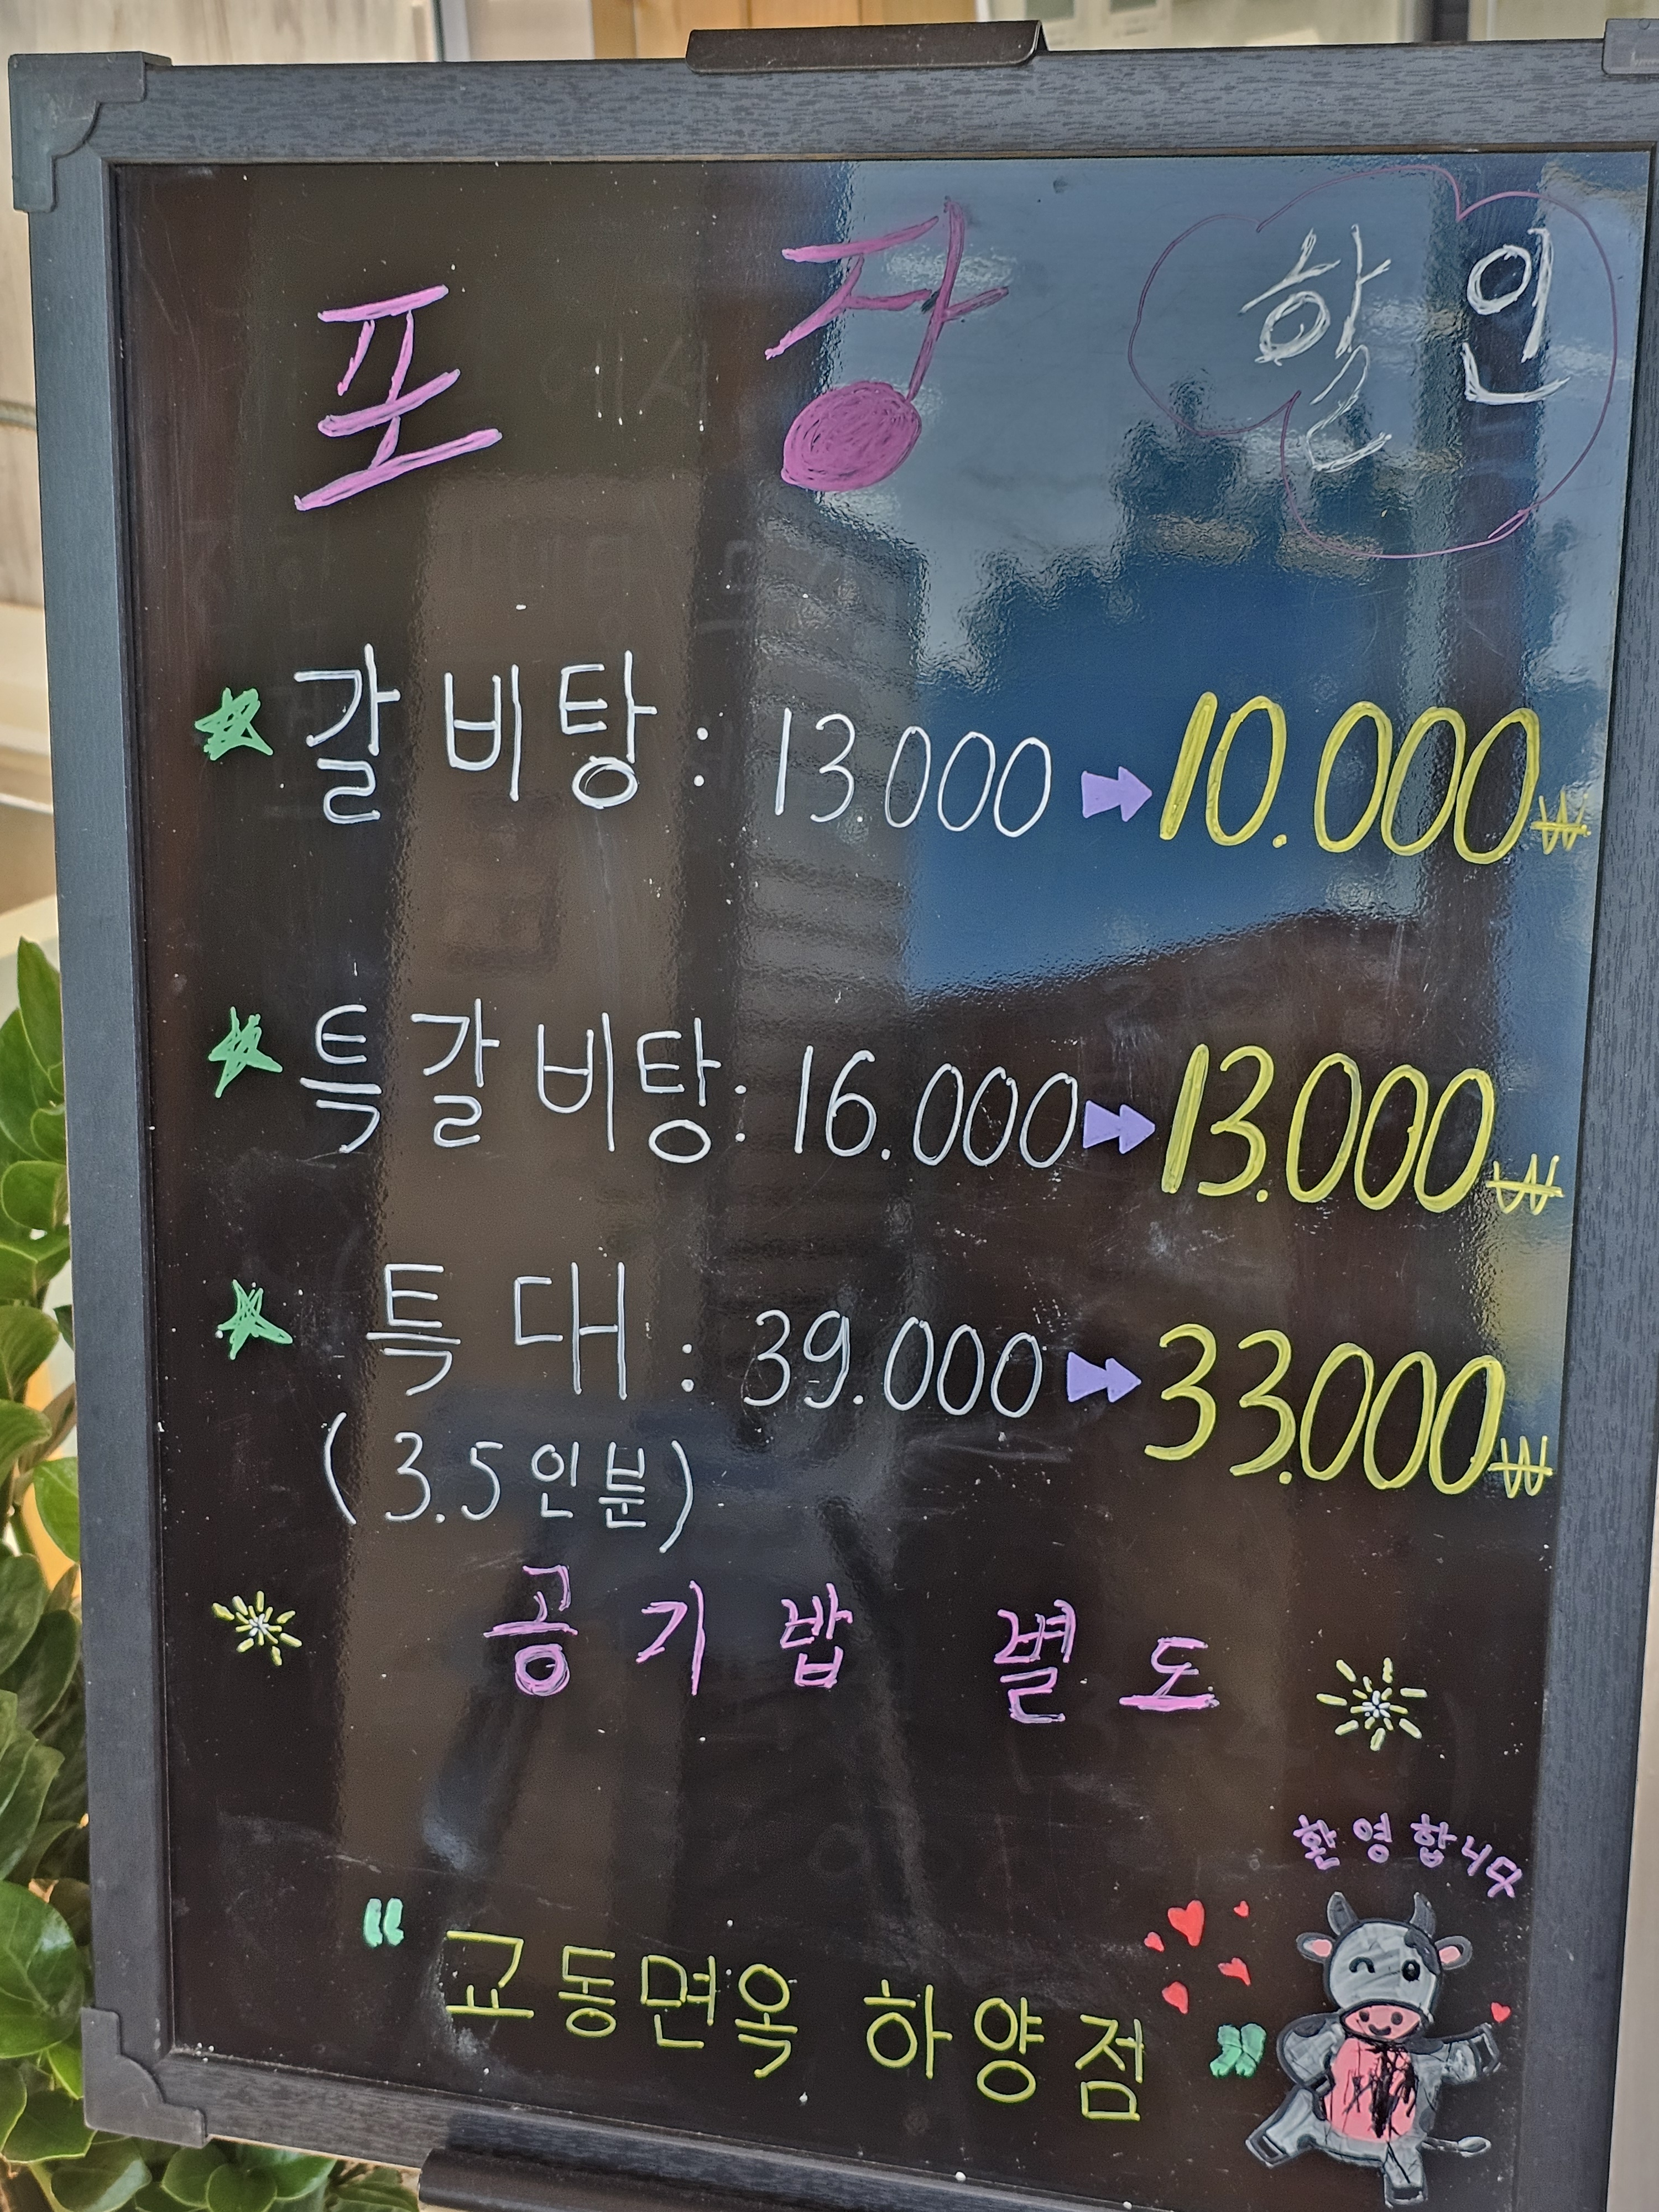 포장 할인
갈비탕 : 13.000 ➡ 10.000₩
특갈비탕 : 16.000 ➡ 13.000₩
특대 : 39.000 ➡ 33.000₩
(3.5인분)
공기밥 별도
환영합니다
“교동면옥 하양점”